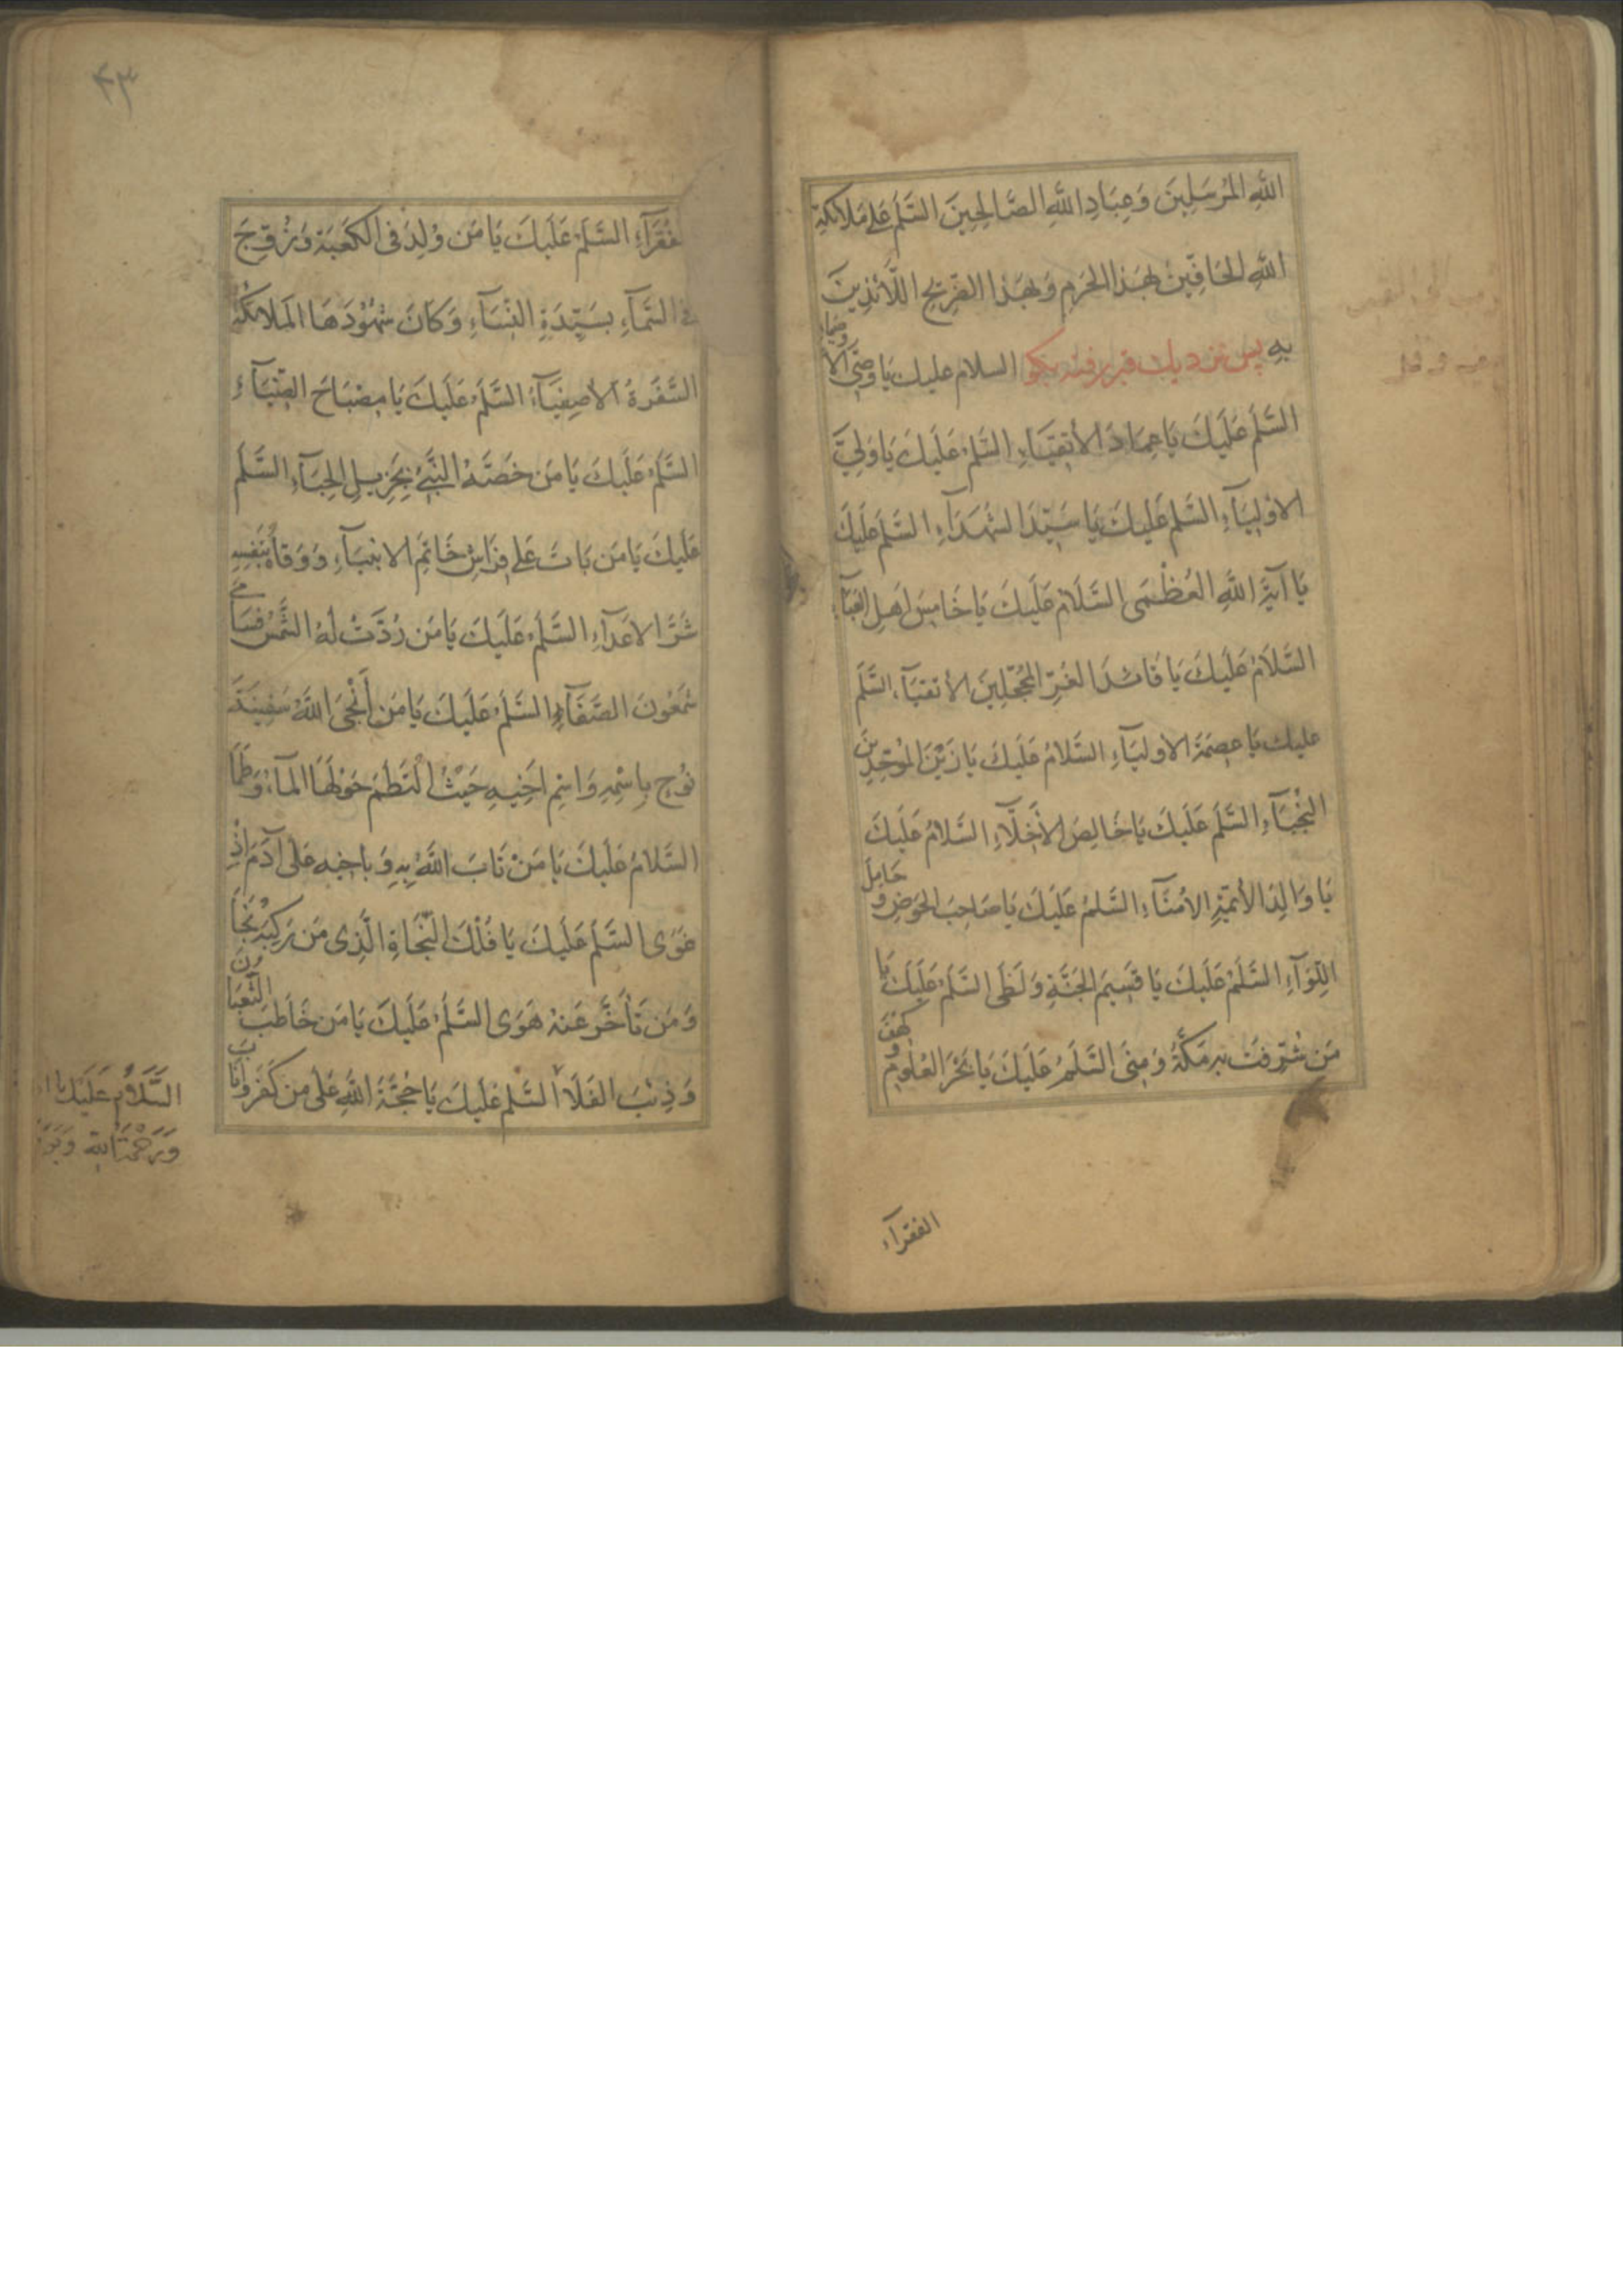 اللَّهِ المُرْسَلِينَ وَعِبَادِ اللَّهِ الصَّالِحِينَ السَّلَمُ عَلَى مَلَائِكَةِ
اللَّهِ الحَافِّينَ بِهَذَا الحَرَمِ وَبِهَذَا الضَّرِيحِ اللَّائِذِينَ
بِهِ پس نزدیك قبر رفته بگو السلام عليك يَا وَصِيَّ الأَوْصِيَاءِ
السَّلَمُ عَلَيْكَ يَا عِمَادَ الأَتْقِيَاءِ السَّلَمُ عَلَيْكَ يَا وَلِيَّ
الأَوْلِيَاءِ السَّلَمُ عَلَيْكَ يَا سَيِّدَ الشُّهَدَاءِ السَّلَمُ عَلَيْكَ
يَا آيَةَ اللَّهِ العُظْمَى السَّلَامُ عَلَيْكَ يَا خَامِسَ أَهْلِ العَبَاءِ
السَّلَامُ عَلَيْكَ يَا قَائِدَ الغُرِّ المُحَجَّلِينَ الأَتْقِيَاءِ السَّلَمُ
عليك يَا عِصْمَةَ الأَوْلِيَاءِ السَّلَامُ عَلَيْكَ يَا زَيْنَ المُوَحِّدِينَ
النُّجَبَاءِ السَّلَمُ عَلَيْكَ يَا خَالِصَ الأَخِلَّاءِ السَّلَامُ عَلَيْكَ
يَا وَالِدَ الأَئِمَّةِ الأُمَنَاءِ السَّلَمُ عَلَيْكَ يَا صَاحِبَ الحَوْضِ وَحَامِلَ
اللِّوَاءِ السَّلَمُ عَلَيْكَ يَا قَسِيمَ الجَنَّةِ وَلَظَى السَّلَمُ عَلَيْكَ يَا
مَن شُرِّفَتْ بِهِ مَكَّةُ وَمِنَى السَّلَمُ عَلَيْكَ يَا بَحْرَ العُلُومِ وَكَهْفَ
الفقرآء
۴۳
الفُقَرَاءِ السَّلَمُ عَلَيْكَ يَا مَن وُلِدَ فِى الكَعْبَةِ وَزُوِّجَ
فِى السَّمَاءِ بِسَيِّدَةِ النِّسَاءِ وَكَانَ شُهُودَهَا المَلَائِكَةُ
السَّفَرَةُ الأَصْفِيَاءُ السَّلَمُ عَلَيْكَ يَا مِصْبَاحَ الضِّيَاءِ
السَّلَمُ عَلَيْكَ يَا مَن خَصَّهُ النَّبِيُّ بِجَزِيلِ الحِبَاءِ السَّلَمُ
عَلَيْكَ يَا مَن بَاتَ عَلَى فِرَاشِ خَاتَمِ الأَنْبِيَاءِ وَوَقَاهُ بِنَفْسِهِ
شَرَّ الأَعْدَاءِ السَّلَمُ عَلَيْكَ يَا مَن رُدَّتْ لَهُ الشَّمْسُ فَسَامَى
شَمْعُونَ الصَّفَا السَّلَمُ عَلَيْكَ يَا مَن أَنْجَى اللَّهُ سَفِينَةَ
نُوحٍ بِاسْمِهِ وَاسْمِ أَخِيهِ حَيْثُ الْتَطَمَ حَوْلَهَا المَاءُ وَطَمَا
السَّلَامُ عَلَيْكَ يَا مَنْ تَابَ اللَّهُ بِهِ وَبِأَخِيهِ عَلَى آدَمَ إِذْ
غَوَى السَّلَمُ عَلَيْكَ يَا فُلْكَ النَّجَاةِ الَّذِى مَن رَكِبَهُ نَجَا
وَمَن تَأَخَّرَ عَنْهُ هَوَى السَّلَمُ عَلَيْكَ يَا مَن خَاطَبَ الثُّعْبَانَ
وَذِئْبَ الفَلَا السَّلَمُ عَلَيْكَ يَا حُجَّةَ اللَّهِ عَلَى مَن كَفَرَ وَأَنَابَ
السَّلَامُ عَلَيْكَ يَا
وَرَحْمَةُ اللَّهِ